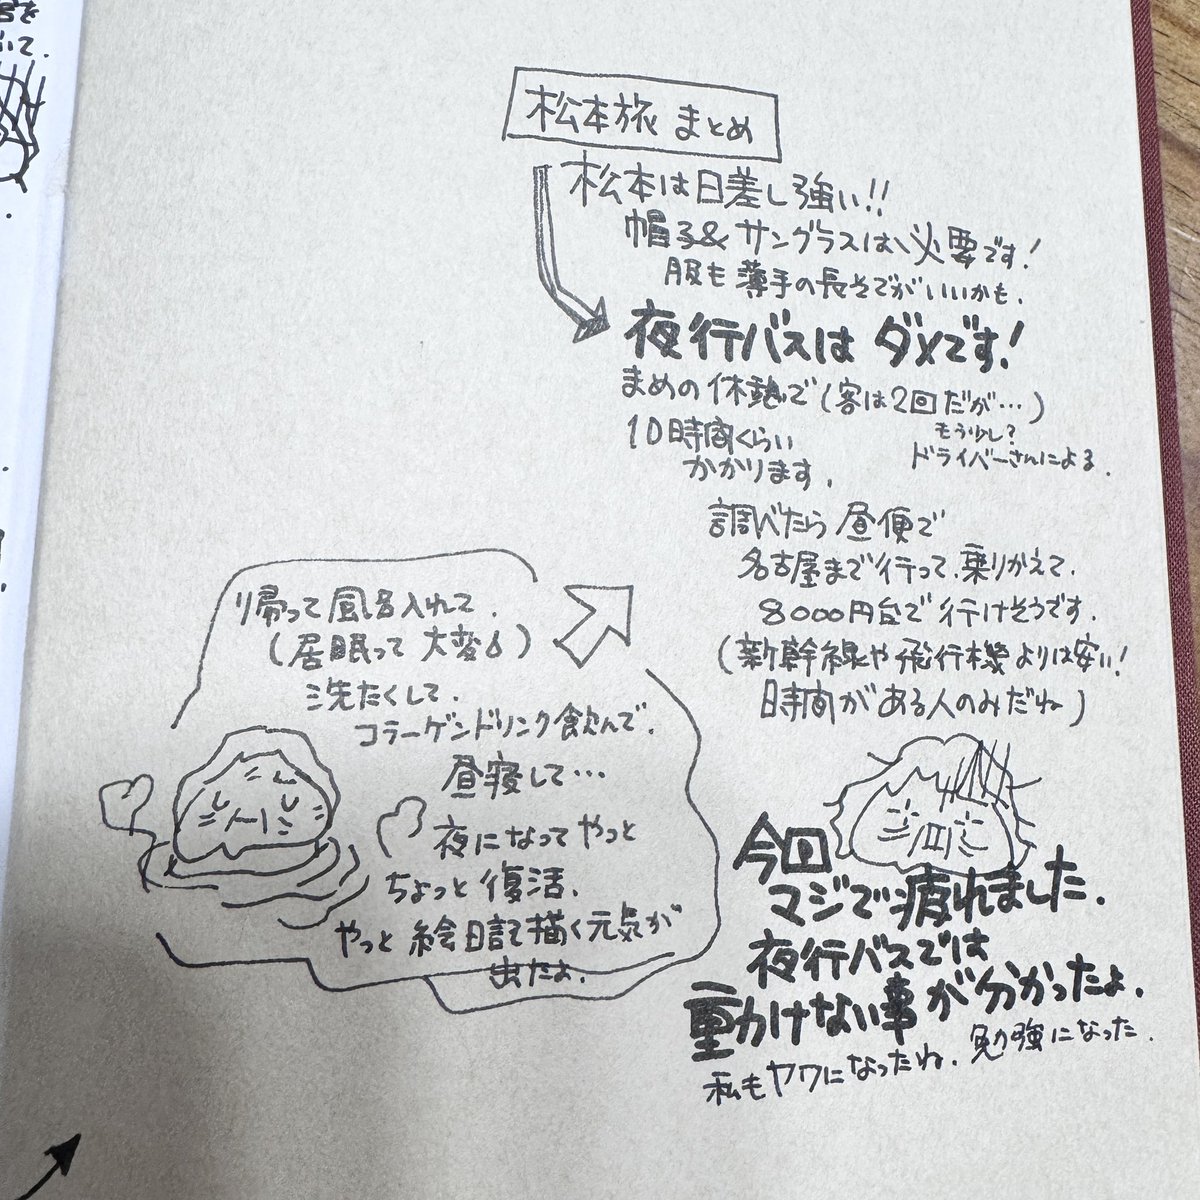 松本旅 まとめ
松本は日差し強い!!
帽子&サングラスは、必要です!
服も薄手の長そでがいいかも.
夜行バスは ダメです!
まめの休憩で(客は2回だが…)
もう少し?
ドライバーさんによる.
10時間くらい
かかります.
調べたら昼便で
名古屋まで行って、乗りかえて.
8000円台で行けそうです.
(新幹線や飛行機よりは安い!
時間がある人のみだね)
今回
マジで疲れました.
夜行バスでは
動けない事が分かったよ.
私もヤワになったね. 勉強になった.
帰って風呂入れて.
(居眠って大変)
洗たくして.
コラーゲンドリンク飲んで.
昼寝して…
夜になってやっと
ちょっと復活.
やっと絵日記描く元気が
出たよ.